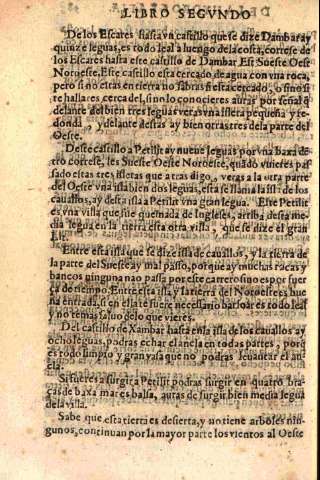 LIBRO SEGVNDO
De los Escares hasta vn castillo que se dize Dambar ay
quinze leguas, es todo leal a luengo de la costa, correse de
los Escares hasta este castillo de Dambar Est Sueste Oest
Noroeste. Este castillo esta cercado de agua con vna roca,
pero si no estas en tierra no sabras si esta cercado, o sino si
te hallares cerca del, si no lo conocieres auras por señal q̃
delante del bien tres leguas veras vna isleta pequeña y re-
donda, y delante destas ay bien otras tres de la parte del
Oeste.
Deste castillo a Petilit ay nueue leguas por vna baxa de-
tro correse, les Sueste Oeste Noroeste, quãdo vuieres pas-
sado estas tres isletas que atras digo, veras a la otra parte
del Oeste vna isla bien dos leguas, esta se llama la isla de los
cauallos, ay desta isla a Petilit vna gran legua. Este Petilit
es vna villa que fue quemada de Ingleses, arriba desta me-
dia legua en la tierra esta otra villa, que se dize el gran
Est.
Entre esta isla que se dize isla de cauallos, y la tierra de
la parte del Sueste ay mal passo, porque ay muchas racas y
bancos ninguna nao passa por este carrero sino es por fuer
ça de tiempo. Entre esta isla y la tierra del Noroeste es bue
na entrada, si en ella te fuere necessario barloar es todo leal
y no temas saluo de lo que vieres.
Del castillo de Xambar hasta en la isla de los cauallos ay
ocho leguas, podras echar el ancla en todas partes, porq̃
es todo limpio y gran vasa que no podras leuantar el an-
cla.
Si fueres a surgir a Petilit podras surgir en quatro bra-
ças de baxa mar es bassa, auras de surgir bien media legua
de la villa.
Sabe que esta tierra es desierta, y no tiene arboles nin-
gunos, continuan por la mayor parte los vientos al Oeste